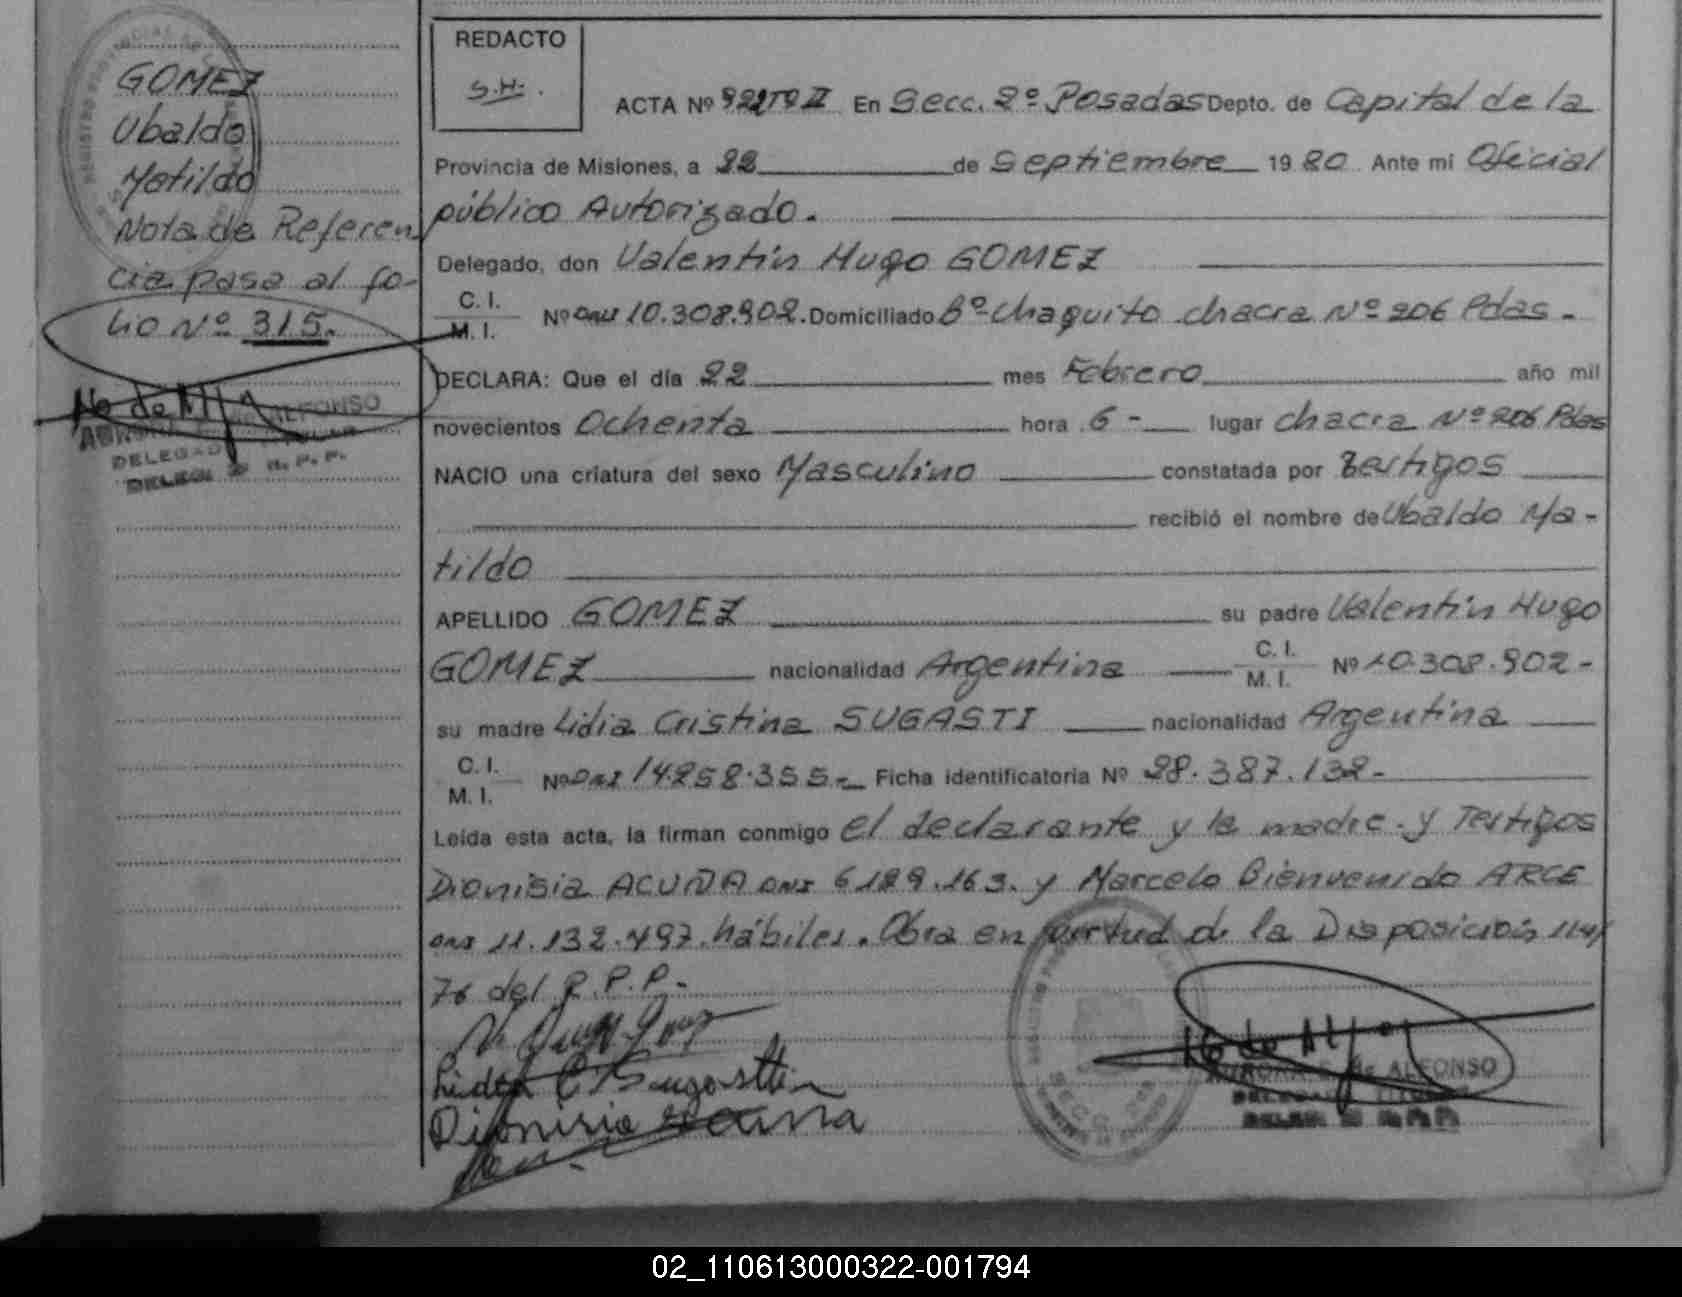 GOMEZ
Ubaldo
Matildo
Nota de Referen
cia pasa al fo-
lio Nº 315.
ALFONSO
DELEGAD
REDACTO
S.H.
ACTA Nº TO II En Secc. 2º Posadas Depto. de Capital de la
Provincia de Misiones, a 22 de Septiembre 1980 Ante mi Oficial
público Autorizado.
Delegado, don Valentin Hugo GOMEZ
C. I.
M. I.
Nº DNI 10.308.902. Domiciliado Bº Chaquito chacra Nº 206 Pdas.
DECLARA: Que el día 22 mes Febrero año mil
novecientos Ochenta hora 6 - lugar chacra Nº 206 Pdas
NACIO una criatura del sexo Masculino constatada por Testigos
recibió el nombre de Ubaldo Ma-
tildo
APELLIDO GOMEZ su padre Valentin Hugo
GOMEZ nacionalidad Argentina C. I. M. I. Nº 10.308.902-
su madre Lidia Cristina SUGASTI nacionalidad Argentina
C. I.
M. I.
Nº DNI 14.258.355.- Ficha identificatoria Nº 28.387.132-
Leída esta acta, la firman conmigo el declarante y la madre. y Testigos
Dionisia ACUÑA DNI 6.189.163. y Marcelo Bienvenido ARCE
DNI 11.132.497. hábiles. Obra en virtud de la Disposición 114/
76 del R.P.P.-
Lidia C Sugasti
Dionisia Acuña
SECC. 2da
ALFONSO
02_110613000322-001794